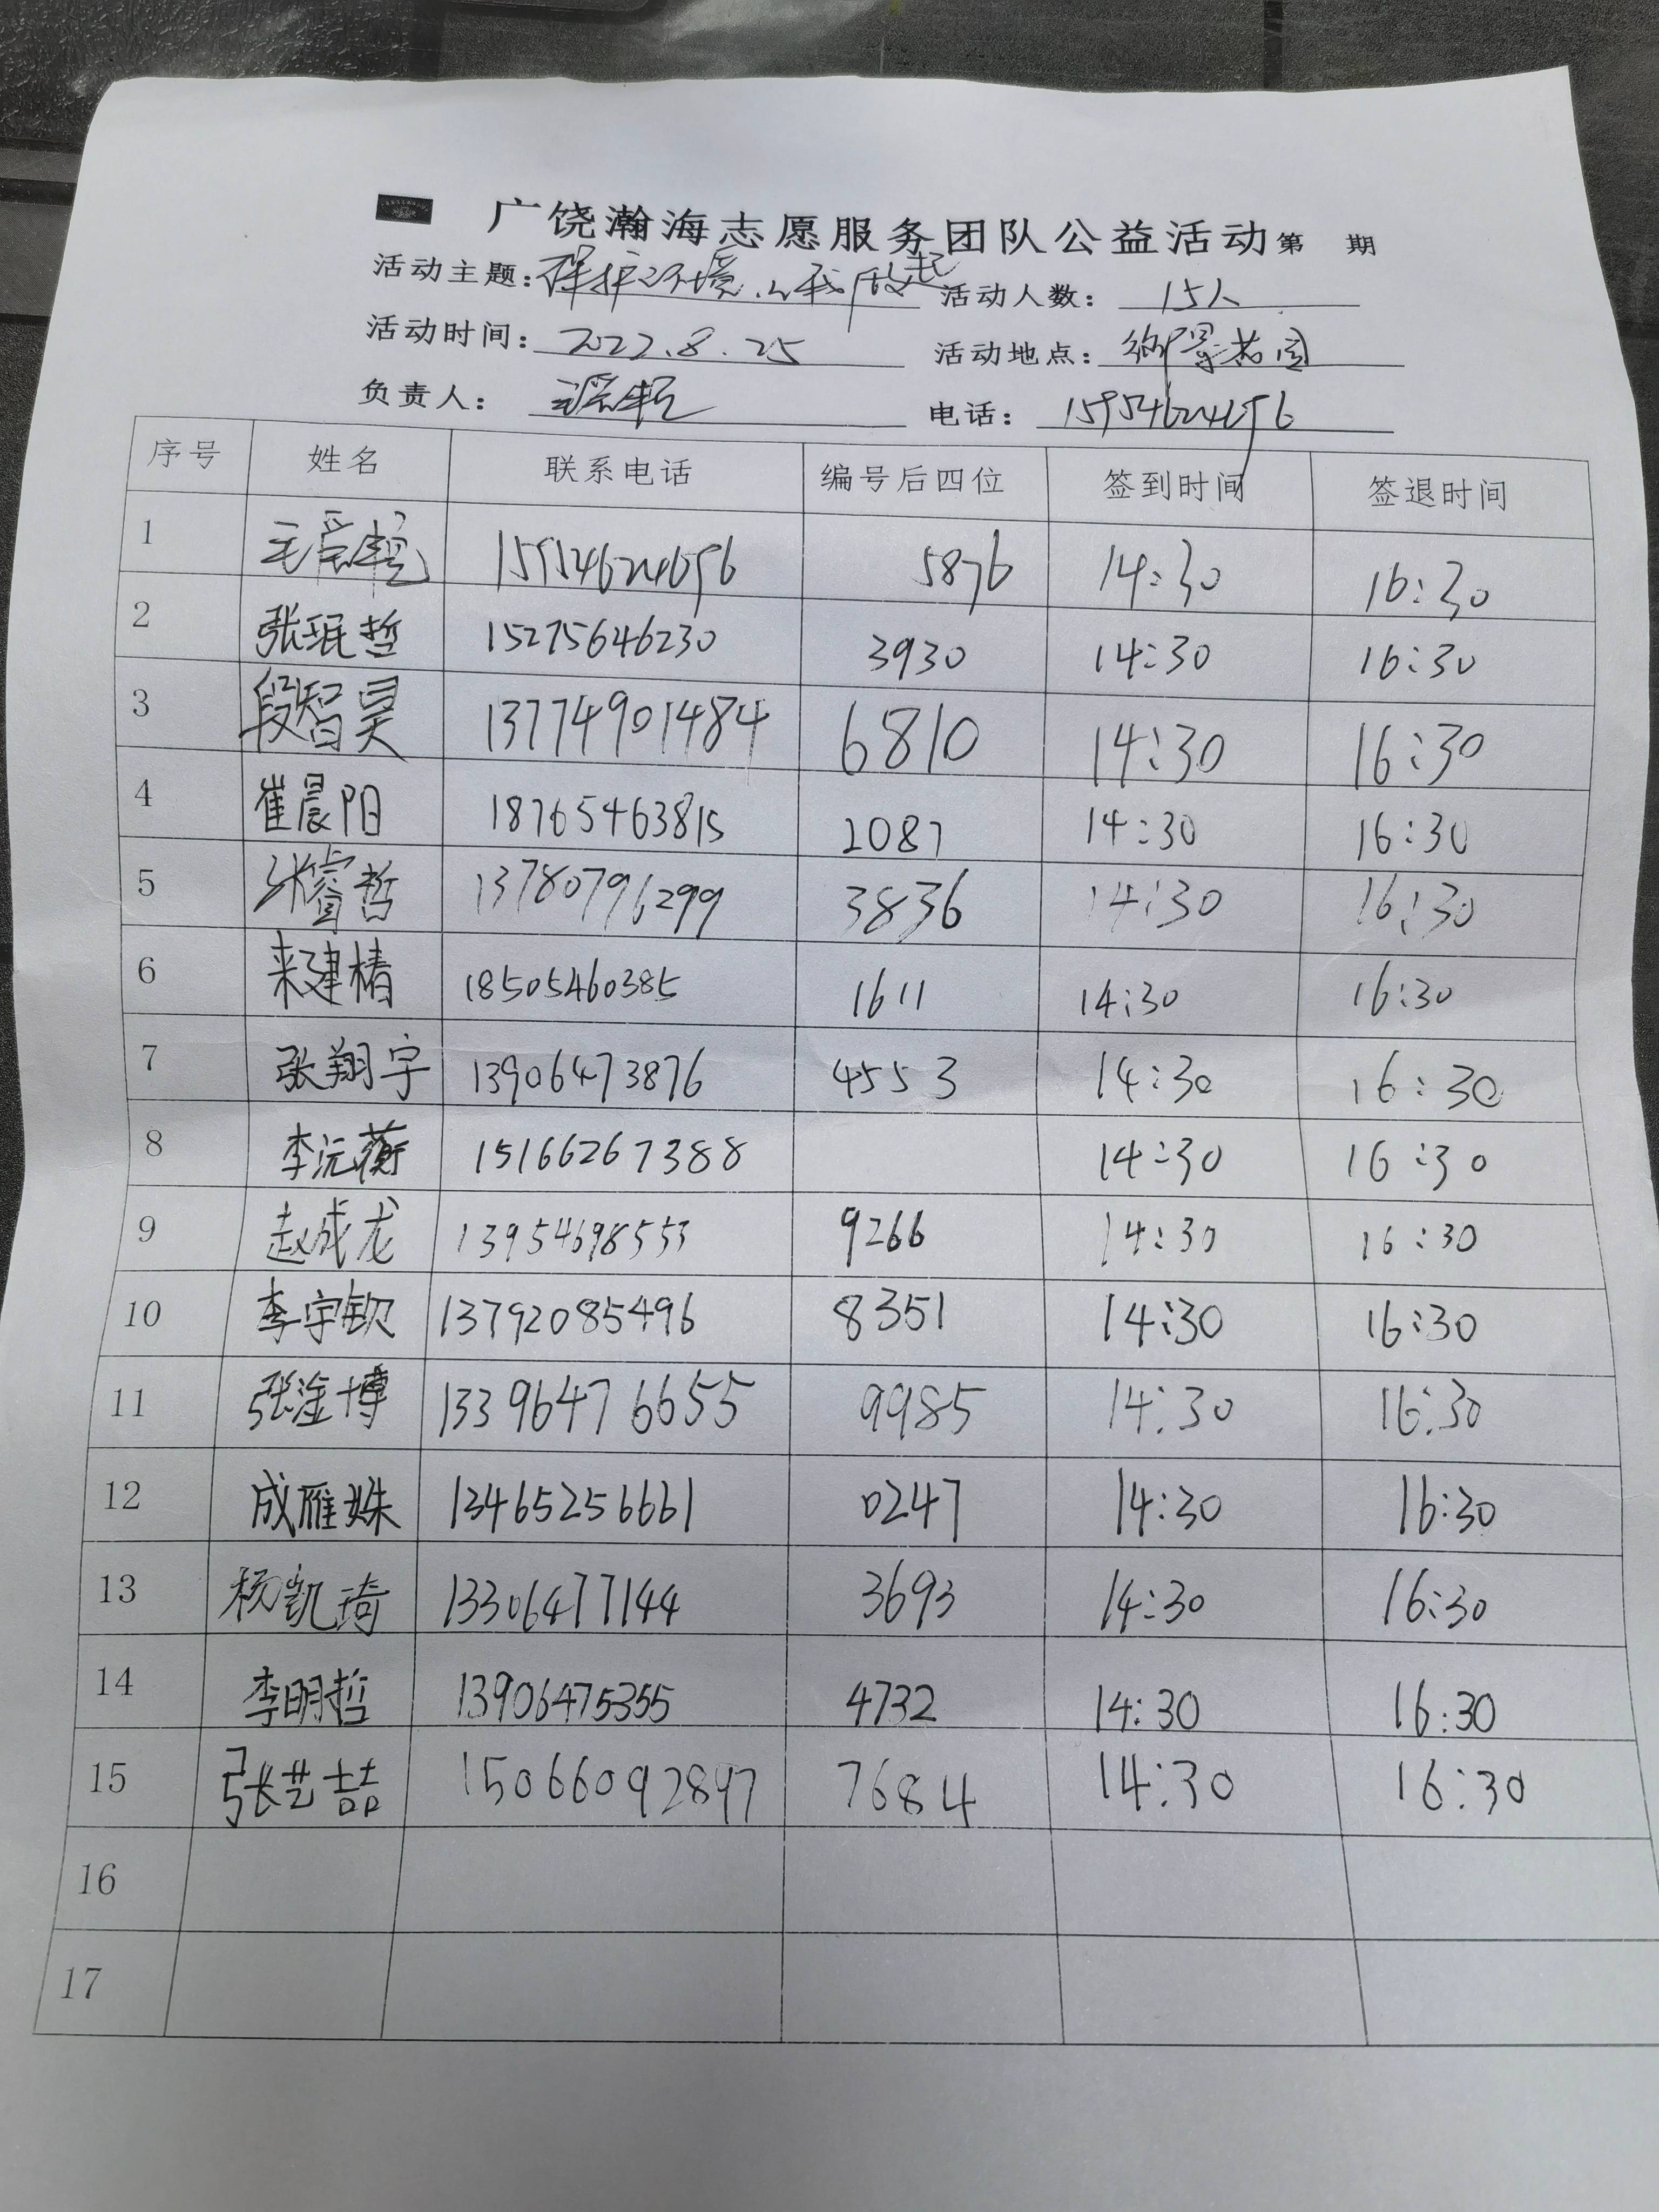 广饶瀚海志愿服务团队公益活动第 期
活动主题：保护环境，从我做起 活动人数： 15人
活动时间： 2022.8.25 活动地点：
负责人： 电话： 15954624696
序号 姓名 联系电话 编号后四位 签到时间 签退时间
1 15954624696 5876 14:30 16:30
2 张珉哲 15275646230 3930 14:30 16:30
3 段智昊 13774901484 6810 14:30 16:30
4 崔晨阳 18765463815 2087 14:30 16:30
5 张睿哲 13780796299 3836 14:30 16:30
6 来建椿 18505460385 1611 14:30 16:30
7 张翔宇 13906473876 4553 14:30 16:30
8 李沅蘅 15166267388 14:30 16:30
9 赵成龙 13954698553 9266 14:30 16:30
10 李宇钦 13792085496 8351 14:30 16:30
11 张淦博 13396476655 9985 14:30 16:30
12 成雁姝 13465256661 0247 14:30 16:30
13 杨凯琦 13306477144 3693 14:30 16:30
14 李明哲 13906475355 4732 14:30 16:30
15 张艺喆 15066092897 7684 14:30 16:30
16
17